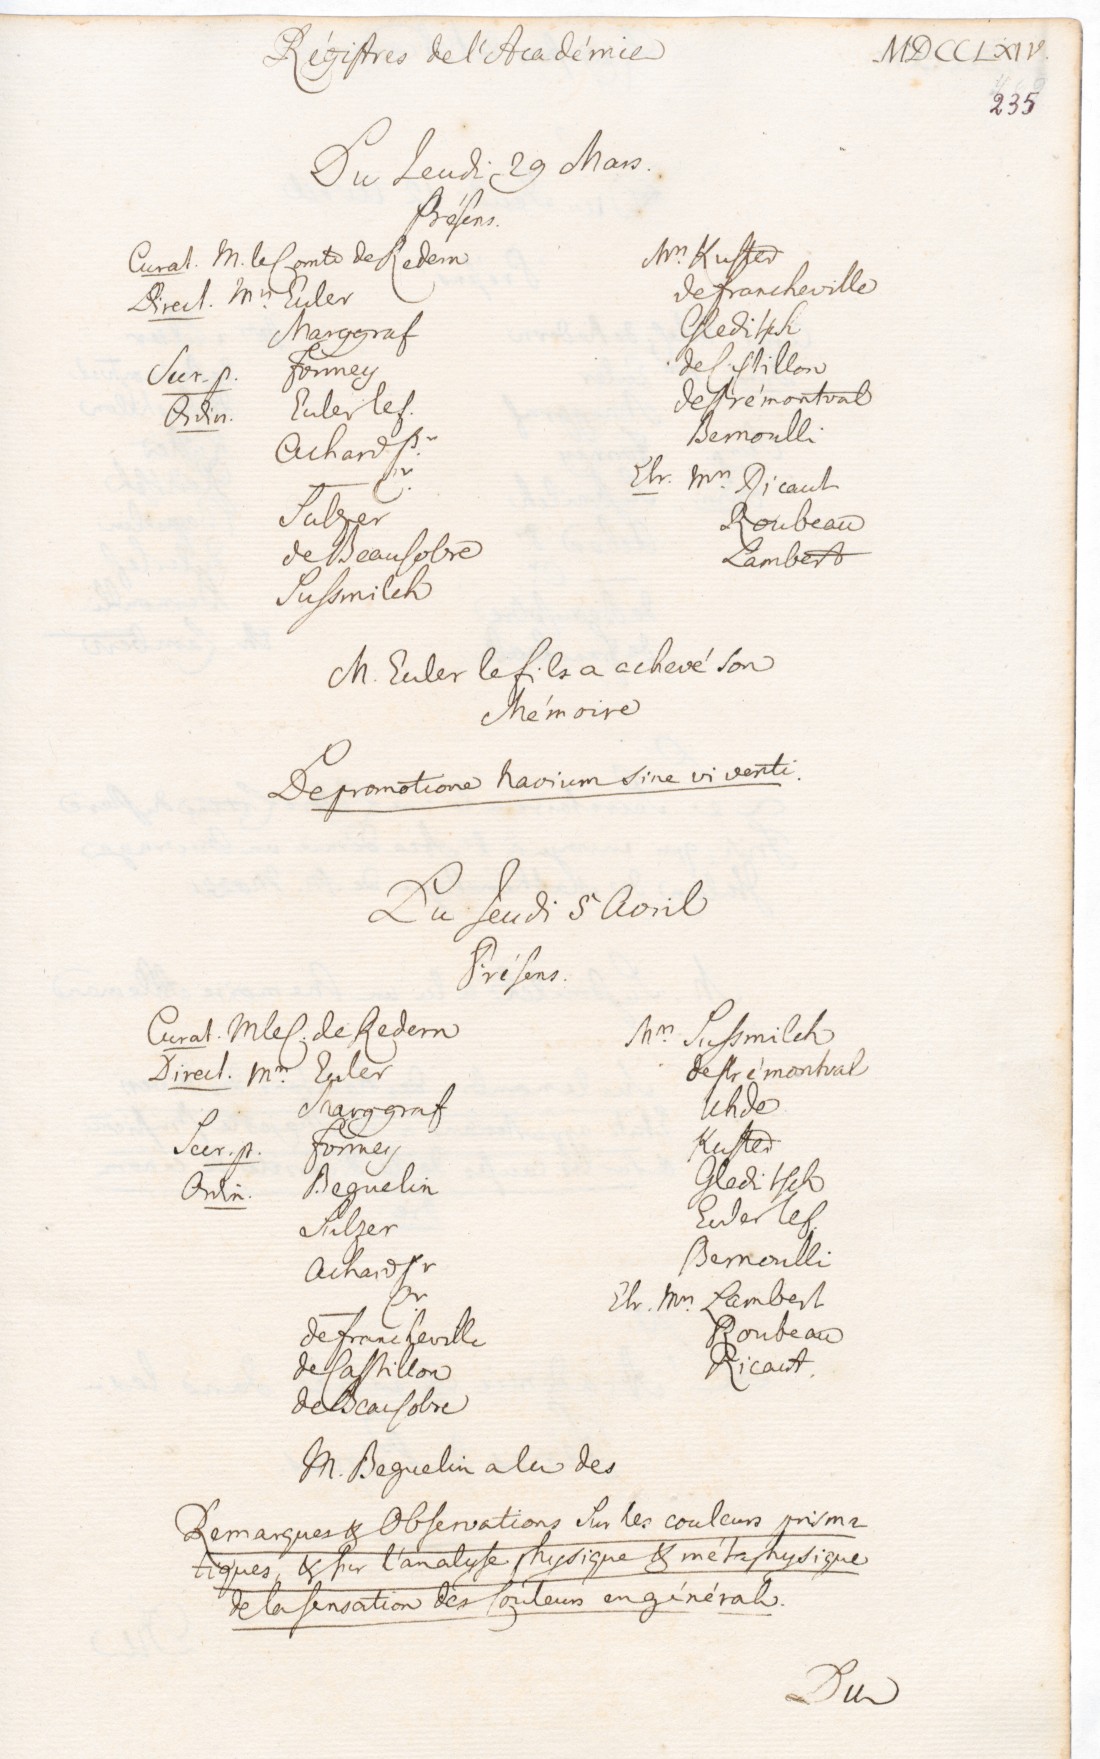 Régistres de l'Académie
MDCCLXIV.
235
Du Jeudi 29 Mars.
Présens.
Curat. M. le Comte de Redern
Direct. Mrs Euler
Marggraf
Secr. p. Formey
Ordin. Euler le f.
Achard Pr.
Jr.
Sulzer
de Beausobre
Sussmilch
Mrs Kuster
de Francheville
Gleditsch
de Castillon
de Prémontval
Bernoulli
Etr. Mrs Ricaut
Roubeau
Lambert
M. Euler le fils a achevé son
Mémoire
De promotione navium sine vi venti.
Du Jeudi 5 Avril
Présens.
Curat. M le C. de Redern
Direct. Mrs Euler
Marggraf
Secr. p. Formey
Ordin. Beguelin
Sulzer
Achard Pr
Jr
de Francheville
de Castillon
de Beausobre
Mrs Sussmilch
de Prémontval
Uhde
Kuster
Gleditsch
Euler le f.
Bernoulli
Etr. Mrs Lambert
Roubeau
Ricaut.
M. Beguelin a lu des
Remarques & Observations sur les couleurs prisma
tiques, & sur l'analyse physique & métaphysique
de la sensation des couleurs en général.
Du